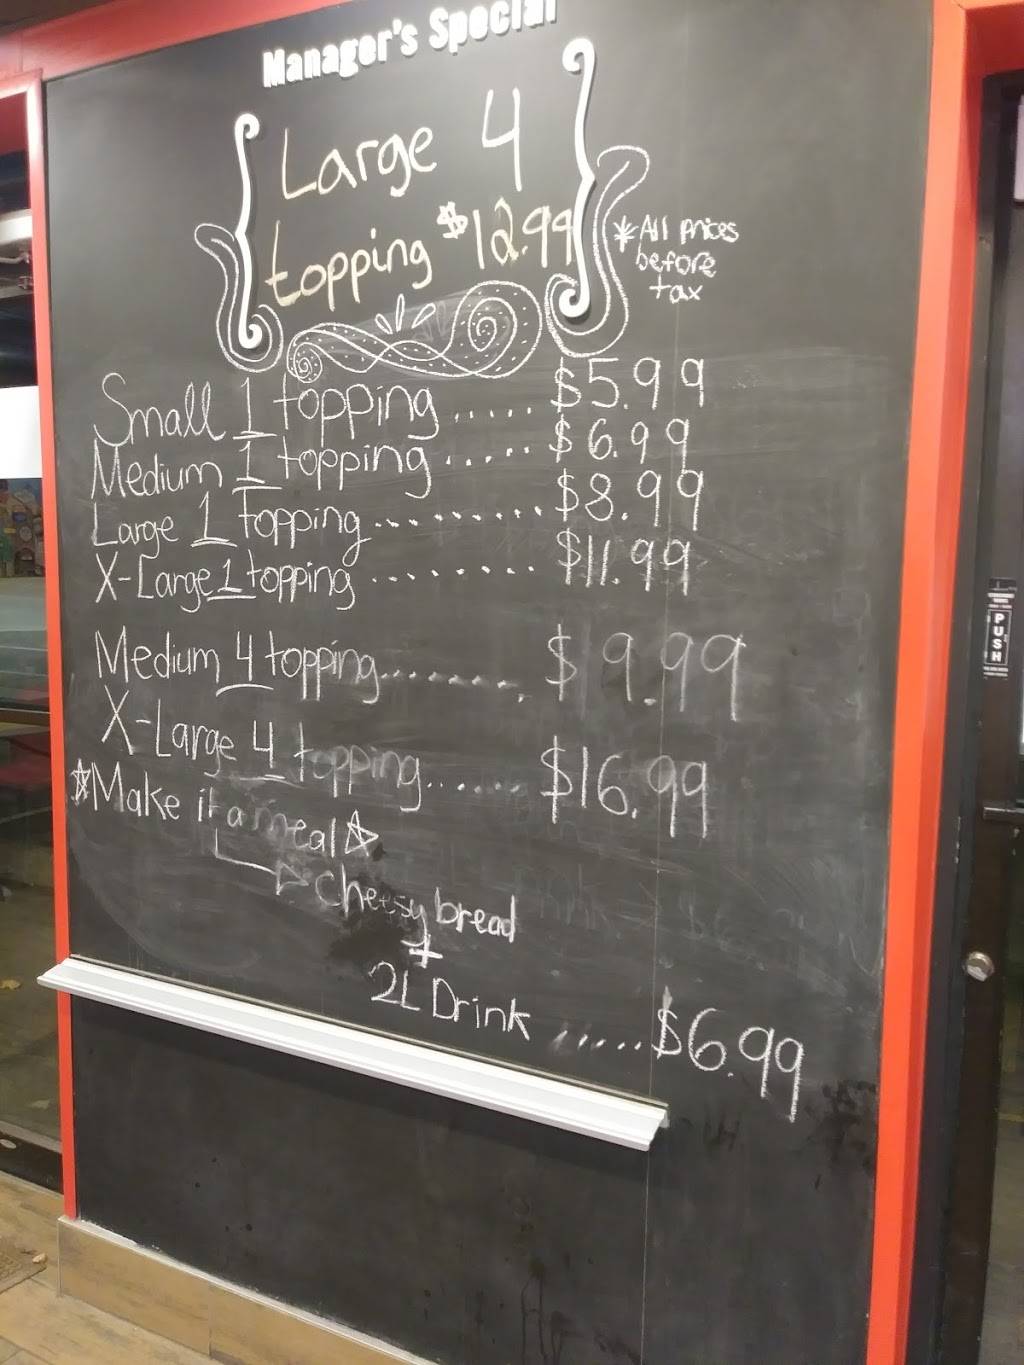 Manager's Special
Large 4
topping $12.99
*All prices
before
tax
Small 1 topping ...... $5.99
Medium 1 topping ...... $6.99
Large 1 Topping .......... $8.99
X-Large 1 topping ......... $11.99
Medium 4 topping......... $9.99
X-Large 4 topping....... $16.99
☆Make it a meal☆
Cheesy bread
+
2L Drink ...... $6.99
PUSH